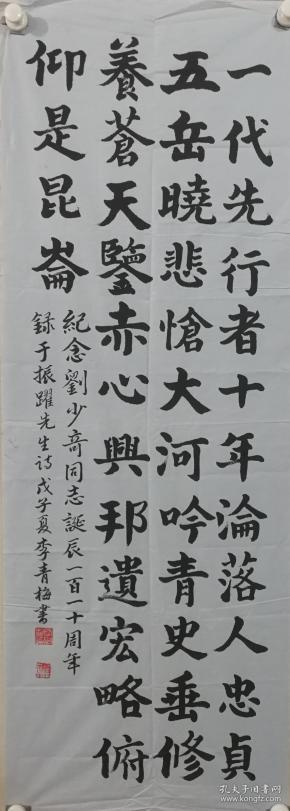 一代先行者十年淪落人忠貞
五岳曉悲愴大河吟青史垂修
養蒼天鑒赤心興邦遺宏略俯
仰是昆崙
紀念劉少奇同志誕辰一百一十周年
録于振躍先生诗戊子夏李青梅書
孔夫子旧书网